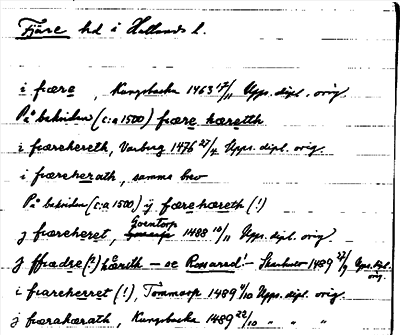 Fjäre hd i Hallands l.
i fiære, Kungsbacka 1463 17/11 Upps. dipl. orig.
På baksidan (c:a 1500) fiære hæretth
i fiærehereth, Varberg 1476 27/4 Upps. dipl. orig.
i fiæreherath, samma brev
På baksidan (c:a 1500) ÿ færehæreth (!)
j fiæreheret, Gorntorp 1488 10/11 Upps. dipl. orig.
j ffrædre (?) hærith – se Rossared! – 1489 Upps. Dipl. orig.
i fiæreherret (!), Tommarp 1489 9/10 Upps. dipl. orig.
j fiærahærath, Kungsbacka 1489 22/10 " " "